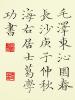 毛澤東沁園春
長沙庚子仲秋
海右居士葛學
功書